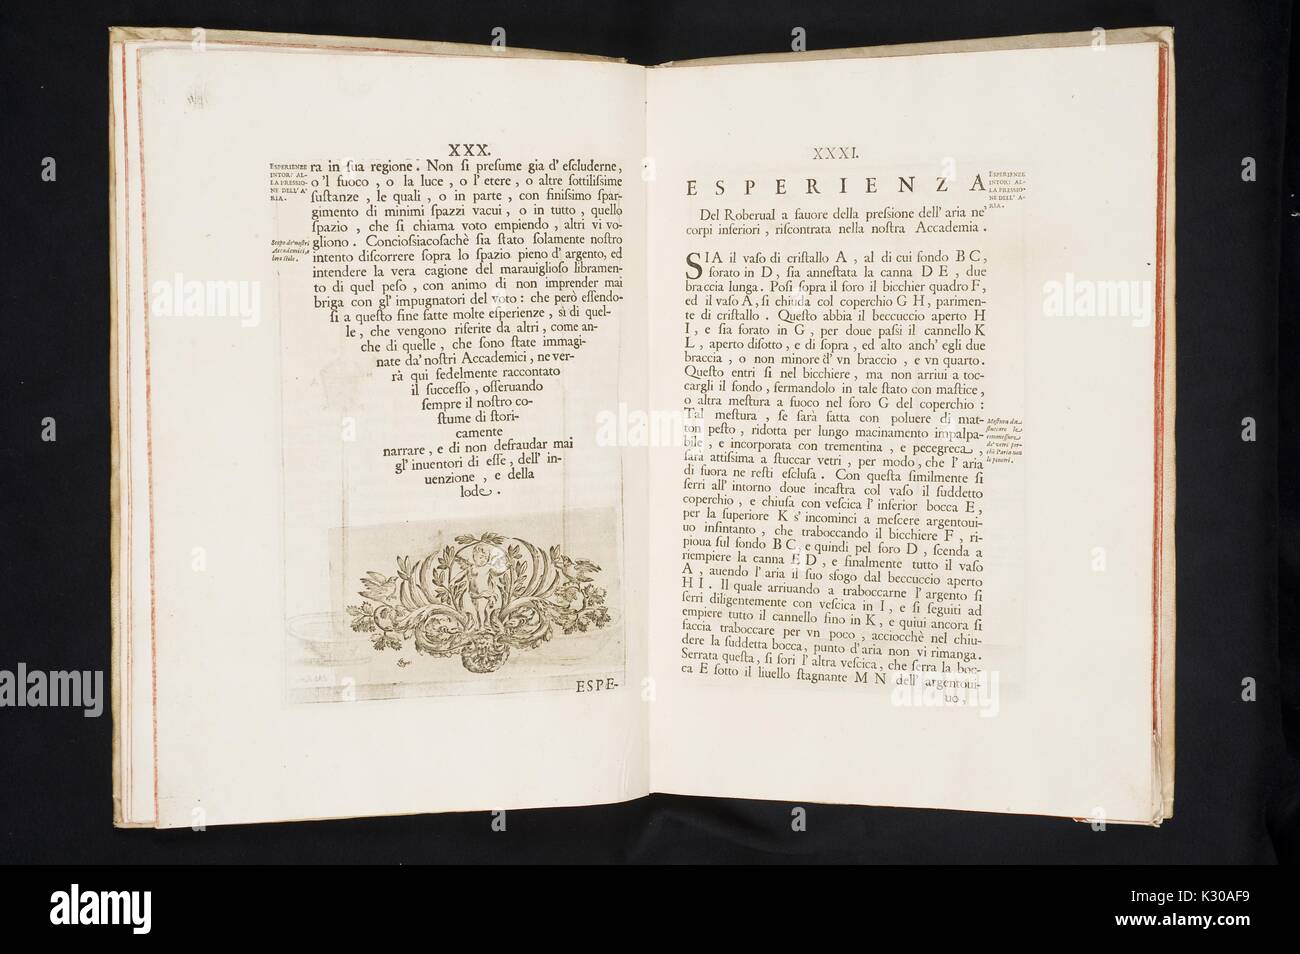 XXX.
ESPERIENZE
INTOR: AL-
LA PRESSIO-
NE DELL' A-
RIA.
ra in ſua regione. Non ſi preſume gia d' eſcluderne,
o 'l fuoco, o la luce, o l' etere, o altre ſottiliſſime
ſuſtanze, le quali, o in parte, con finiſſimo ſpar-
gimento di minimi ſpazzi vacui, o in tutto, quello
ſpazio, che ſi chiama voto empiendo, altri vi vo-
Scopo de' noſtri
Accademici, e
loro ſtile.
gliono. Concioſſiacoſachè ſia ſtato ſolamente noſtro
intento diſcorrere ſopra lo ſpazio pieno d' argento, ed
intendere la vera cagione del marauiglioſo libramen-
to di quel peſo, con animo di non imprender mai
briga con gl' impugnatori del voto: che però eſſendo-
ſi a queſto fine fatte molte eſperienze, sì di quel-
le, che vengono riferite da altri, come an-
che di quelle, che ſono ſtate immagi-
nate da' noſtri Accademici, ne ver-
rà quì fedelmente raccontato
il ſucceſſo, oſſeruando
ſempre il noſtro co-
ſtume di ſtori-
camente
narrare, e di non defraudar mai
gl' inuentori di eſſe, dell' in-
uenzione, e della
lode.
ESPE-
XXXI.
ESPERIENZE
INTOR: AL-
LA PRESSIO-
NE DELL' A-
RIA.
ESPERIENZA
Del Roberual a fauore della preſſione dell' aria ne'
corpi inferiori, riſcontrata nella noſtra Accademia.
SIA il vaſo di criſtallo A, al di cui fondo BC,
forato in D, ſia anneſtata la canna DE, due
braccia lunga. Poſi ſopra il foro il bicchier quadro F,
ed il vaſo A, ſi chiuda col coperchio G H, parimen-
te di criſtallo. Queſto abbia il beccuccio aperto H
I, e ſia forato in G, per doue paſſi il cannello K
L, aperto diſotto, e di ſopra, ed alto anch' egli due
braccia, o non minore d' vn braccio, e vn quarto.
Queſto entri ſi nel bicchiere, ma non arriui a toc-
cargli il fondo, fermandolo in tale ſtato con maſtice,
o altra meſtura a fuoco nel foro G del coperchio:
Tal meſtura, ſe ſarà fatta con poluere di mat-
ton peſto, ridotta per lungo macinamento impalpa-
bile, e incorporata con trementina, e pecegreca,
ſarà attiſſima a ſtuccar vetri, per modo, che l' aria
Meſtura da
ſtuccare le
commeſſure
de' vetri per-
chè l'aria non
le penetri.
di fuora ne reſti eſcluſa. Con queſta ſimilmente ſi
ſerri all' intorno doue incaſtra col vaſo il ſuddetto
coperchio, e chiuſa con veſcica l' inferior bocca E,
per la ſuperiore K s' incominci a meſcere argentoui-
uo inſintanto, che traboccando il bicchiere F, ri-
pioua ſul fondo BC, e quindi pel foro D, ſcenda a
riempiere la canna ED, e finalmente tutto il vaſo
A, auendo l' aria il ſuo sfogo dal beccuccio aperto
H I. Il quale arriuando a traboccarne l' argento ſi
ſerri diligentemente con veſcica in I, e ſi ſeguiti ad
empiere tutto il cannello fino in K, e quiui ancora ſi
faccia traboccare per vn poco, acciocchè nel chiu-
dere la ſuddetta bocca, punto d'aria non vi rimanga.
Serrata queſta, ſi fori l' altra veſcica, che ſerra la boc-
ca E ſotto il liuello ſtagnante M N dell' argentoui-
uo,
alamy
alamy stock photo
K30AF9
www.alamy.com